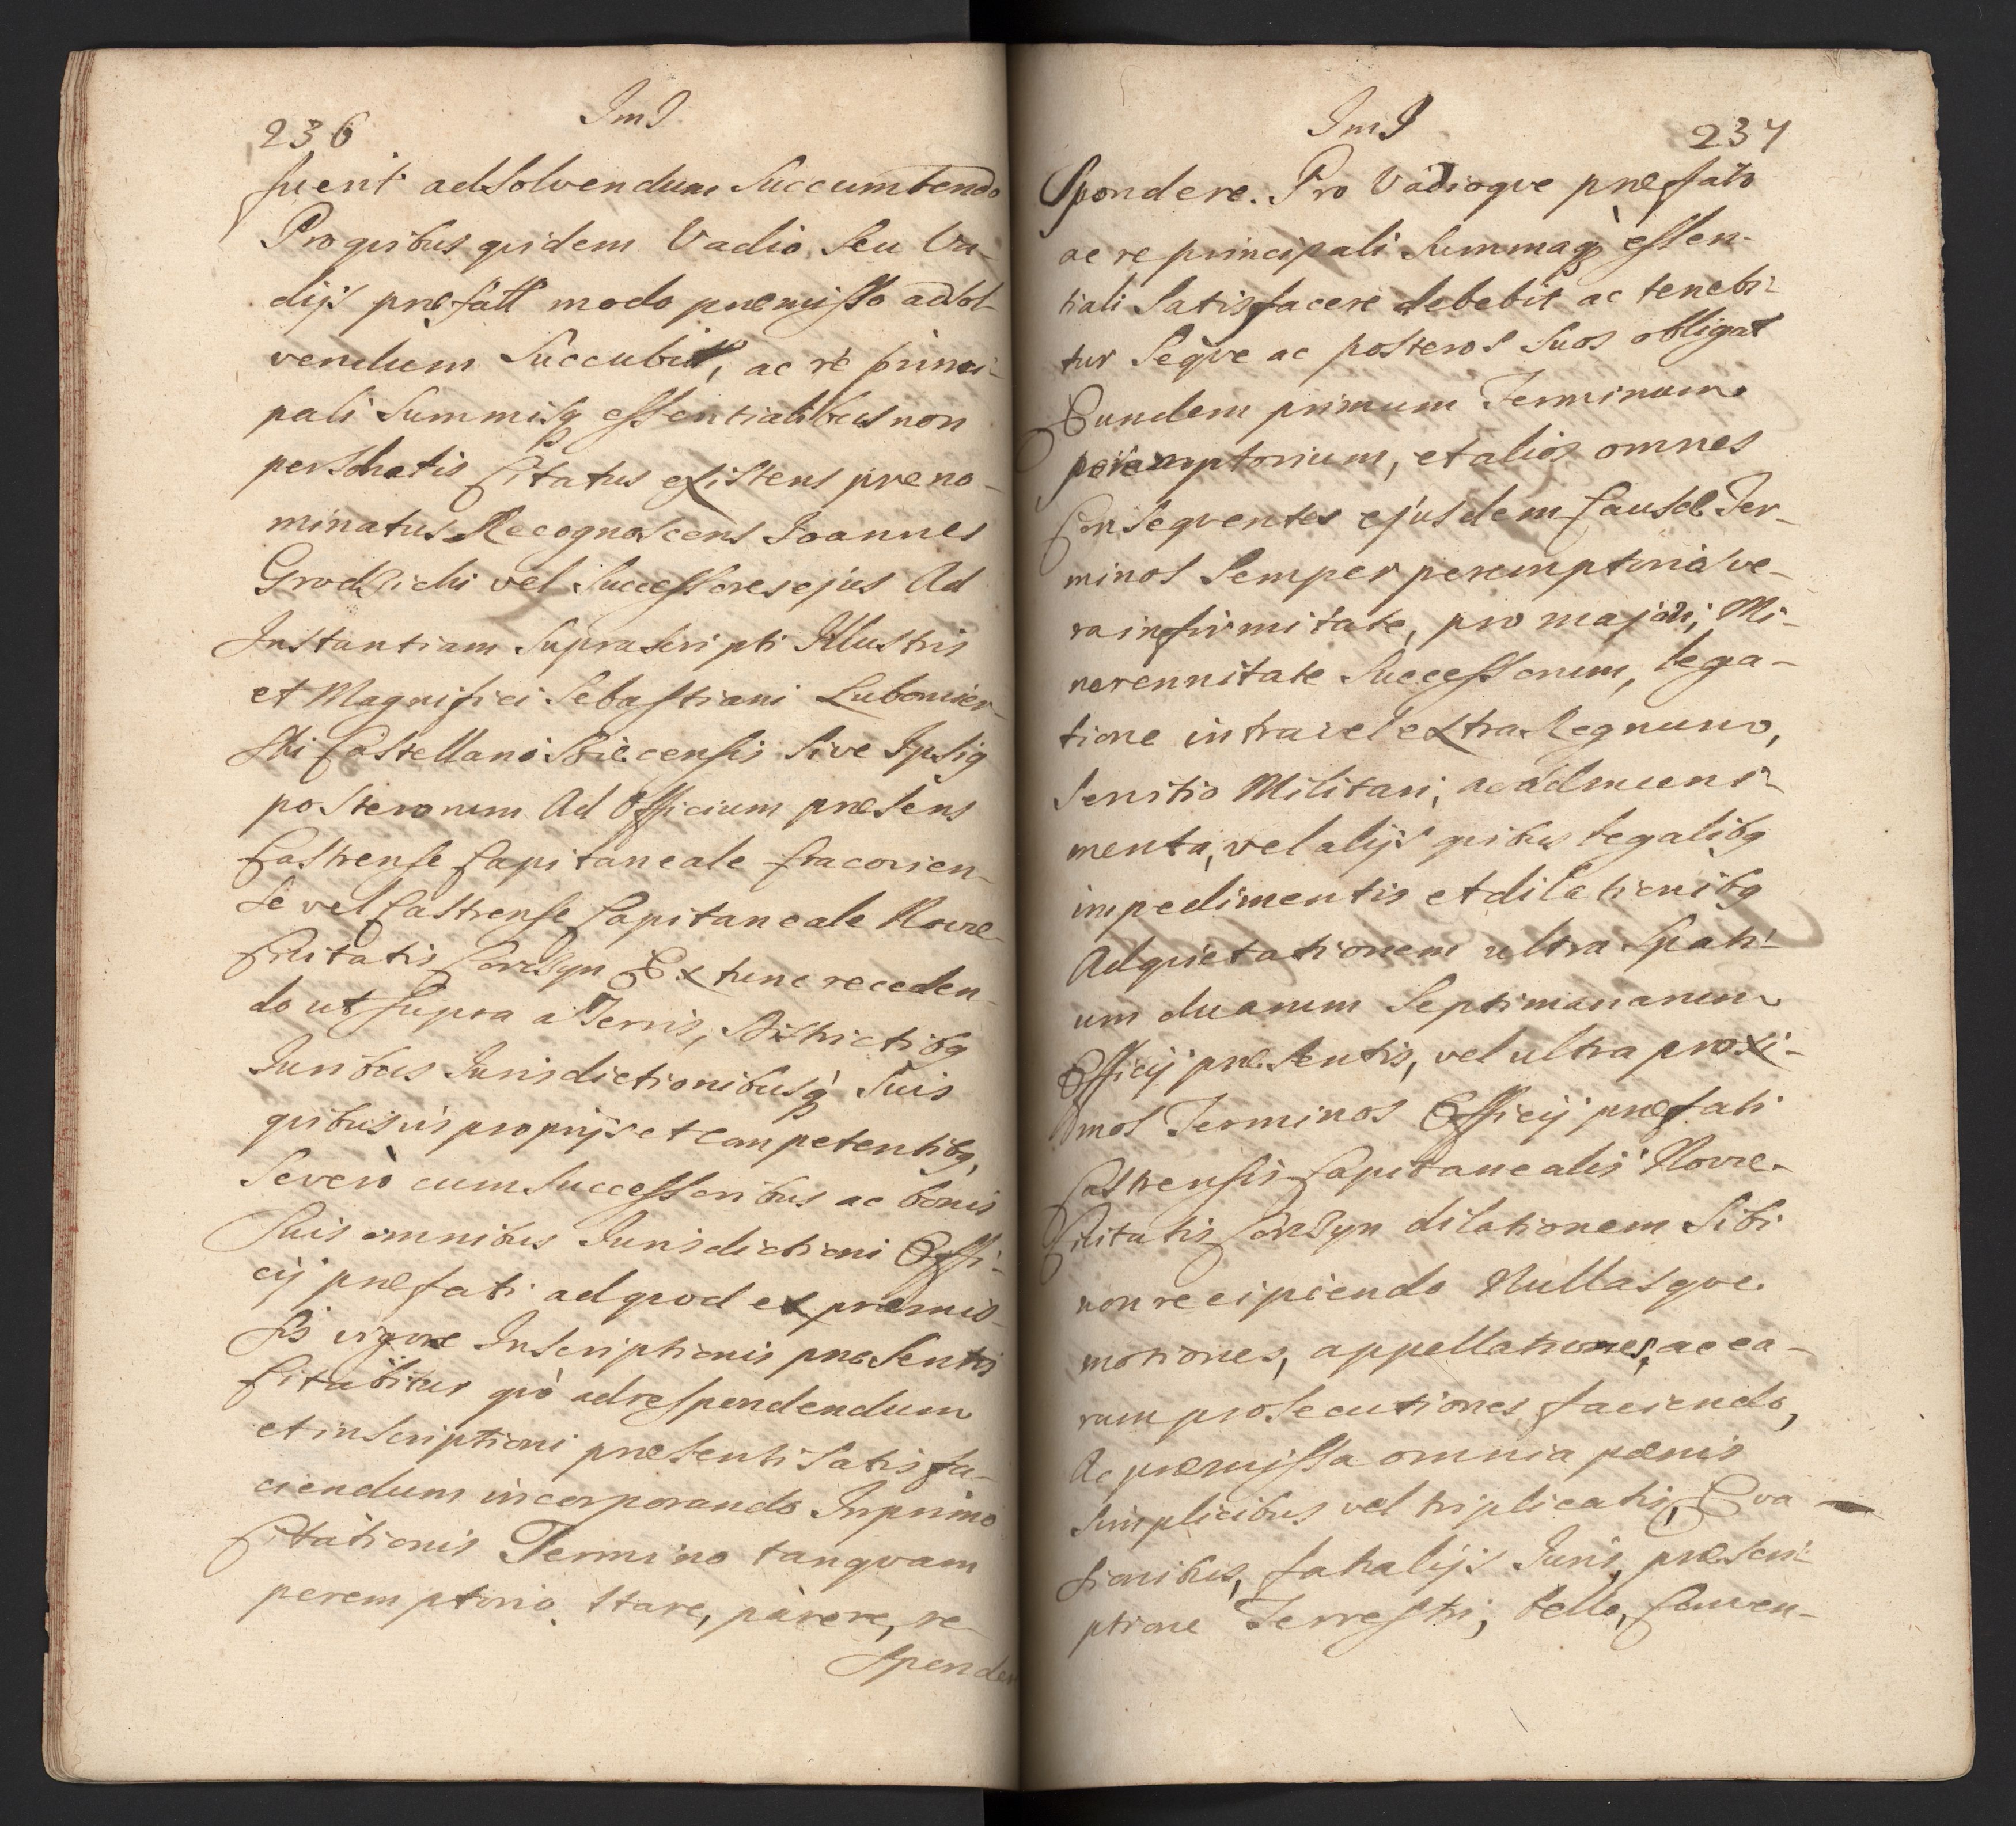 236
ImI
fuerit adsolvendum Succumbendo
Pro quibus quidem Vadio Seu Va-
dijs præfatt modo præmisso adsol-
vendum Succubit, ac re princi-
pali Summisq essentialibus non
persolutis Citatus existens preno-
minatus Recognoscens Joannes
Grodzicki vel Successores ejus Ad
Instantiam Suprascripti Illustris
et Magnifici Sebastiani Lubomier-
ski Castellani Biecensis Sive Ipsiq
posterorum Ad Officium præsens
Castrense Capitaneale Cracovien-
se vel Castrense Capitaneale Novæ-
Civitatis Corczyn Extunc receden-
do ut supra a Terris, districtibq
Juribus Jurisdictionibusq Suis
quibusvis proprijs et competentibq,
Severo cum Successoribus ac bonis
Suis omnibus Jurisdictioni Offi-
cij præfati ad quod ex præmis-
sis vigore Inscriptionis præsentis
Citabitur quò ad respondendum
et inscriptioni præsenti Satisfa-
ciendum incorporando In primo
Citationis Termino tanqvam
peremptorio Stare, parere, re-
sponder
ImI
237
Spondere. Pro Vadioqve præfato
ac re principali Summaq essen-
tiali Satisfacere debebit ac tenebi-
tur Seqve ac posteros Suos obligat
Eundem primum Terminum
peremptorium, et alios omnes
Conseqventes ejusdem Causæ Ter-
minos Semper peremptorios ve-
ra infirmitate, pro majori, Mi-
norennitate Successorum, lega-
tione intra vel extra Regnum,
Servitio Militari, ac ad muni-
menta, vel alijs quibus legalibq
impedimentis et dilationibq
Ad quietationem ultra Spati-
um duarum Septimanarum
Officij præsentis, vel ultra proxi-
mos Terminos Officij præfati
Castrensis Capitanealis Novæ-
Civitatis Corczyn dilationem Sibi
non recipiendo Nullasqve
motiones, appellationes, ac ea-
rum prosecutiones faciendo,
Ac præmissa omnia pænis
Simplicibus vel triplicatis, Eva
sionibus, fatalijs Juris, præscri-
ptione Terrestri, bello, Conven-